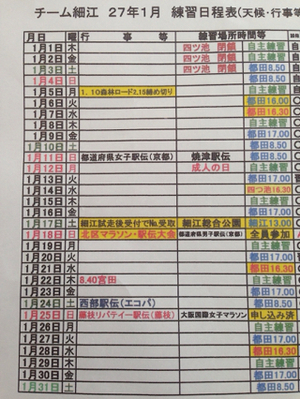 チーム細江 27年1月 練習日程表(天候・行事等
月日 曜 行 事 等 練習場所時間等
1月1日 木 四ツ池 閉鎖 自主練習
1月2日 金 四ツ池 閉鎖 自主練習
1月3日 土 四ツ池 閉鎖 自主練習
1月4日 日 都田8.50
1月5日 月 1.10森林ロード2.15締め切り 自主練習
1月6日 火 都田16.00
1月7日 水 都田16.30
1月8日 木 自主練習
1月9日 金 都田17.00
1月10日 土 自主練習
1月11日 日 都道府県女子駅伝(京都) 焼津駅伝 都田8.50
1月12日 月 成人の日 自主練習
1月13日 火 都田17.00
1月14日 水 四つ池16.30
1月15日 木 自主練習
1月16日 金 都田17.00
1月17日 土 細江試走後受付で№受取 細江総合公園 細江13.00
1月18日 日 北区マラソン・駅伝大会 都道府県男子駅伝(京都) 全員参加
1月19日 月 自主練習
1月20日 火 都田17.00
1月21日 水 都田16.30
1月22日 木 5.40宮田 自主練習
1月23日 金 都田17.00
1月24日 土 西部駅伝(エコパ) 都田8.50
1月25日 日 藤枝リバティー駅伝(藤枝) 大阪国際女子マラソン 申し込み済
1月26日 月 自主練習
1月27日 火 都田17.00
1月28日 水 都田16.30
1月29日 木 自主練習
1月30日 金 都田17.00
1月31日 土 都田8.50